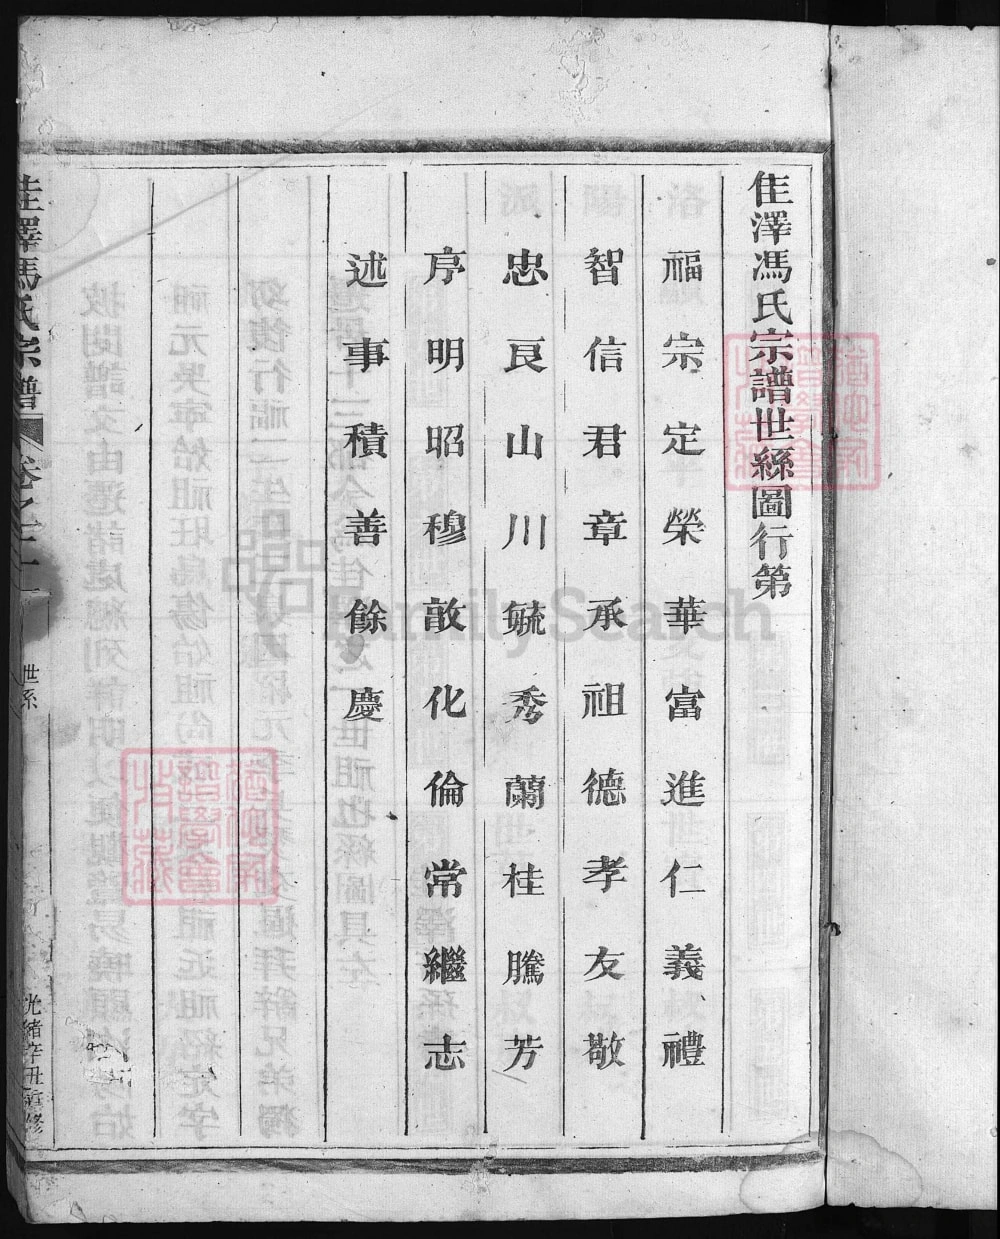 佳澤馮氏宗譜世系圖行第
福宗定榮華富進仁義禮
智信君章承祖德孝友敬
忠良山川毓秀蘭桂騰芳
序明昭穆敢化倫常繼志
述事積善餘慶
佳澤馮氏宗譜
卷之一
世系
光緒辛丑重修
FamilySearch